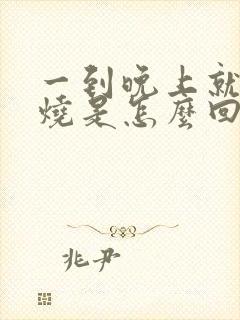 一到晚上就
燒是怎麼回
兆尹